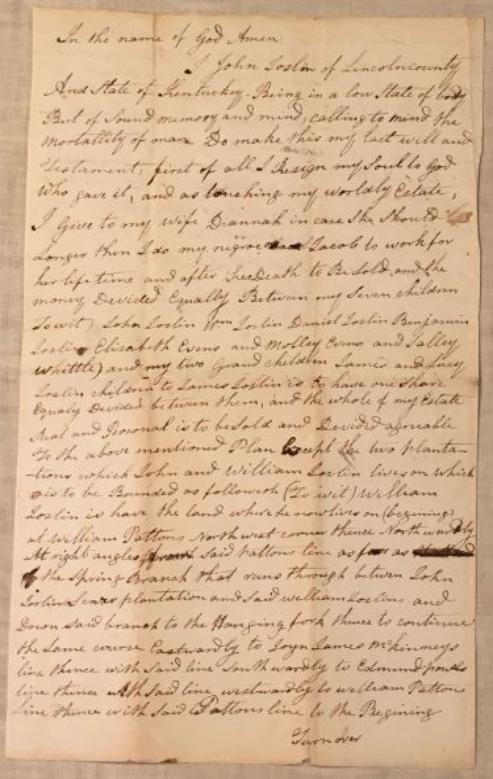 In the name of God Amen
I John Loslin of Lincoln county
And State of Kentuckey. Being in a low State of body
But of Sound memory and mind, calling to mind the
mortallity of man Do make this my last will and
Testament, first of all I Resign my Soul to God
Who gave it, and as touching my worldly Estate,
I Give to my wife Diannah in case She Should
Longer then I do my negroe Jacob to work for
her life time and after her Death to Be Sold, and the
money Devided Equally Between my Seven children
Towit) John Loslin Wm Loslin Daniel Loslin Benjamin
Loslin Elisabeth Evens and Molley Evens and Salley
Whittle) and my two Grand children James and Lucy
Loslin children to James Loslin is to have one Share
Equaly Devided between them, and the whole of my Estate
Real and Personal is to be Sold and Devided agreable
To the above mentioned Plan Except the two planta-
-tions which John and William Loslin lives on which
is to be Bounded as followeth (To wit) William
Loslin is have the land where he now lives on (begining)
at William Pattons North west corner thence North wardly
At right angles said Pattons line as far as
the Spring Branch that runs through betwen John
Loslin plantation and said William Loslens and
Down said branch to the Hanging fork thence to continue
the same course Eastwardly to Joyn James McKinneys
line thence with said line South wardly to Edmund
line thence with said line westwardly to William Pattons
line thence with said Pattons line to the Begining
Turn over